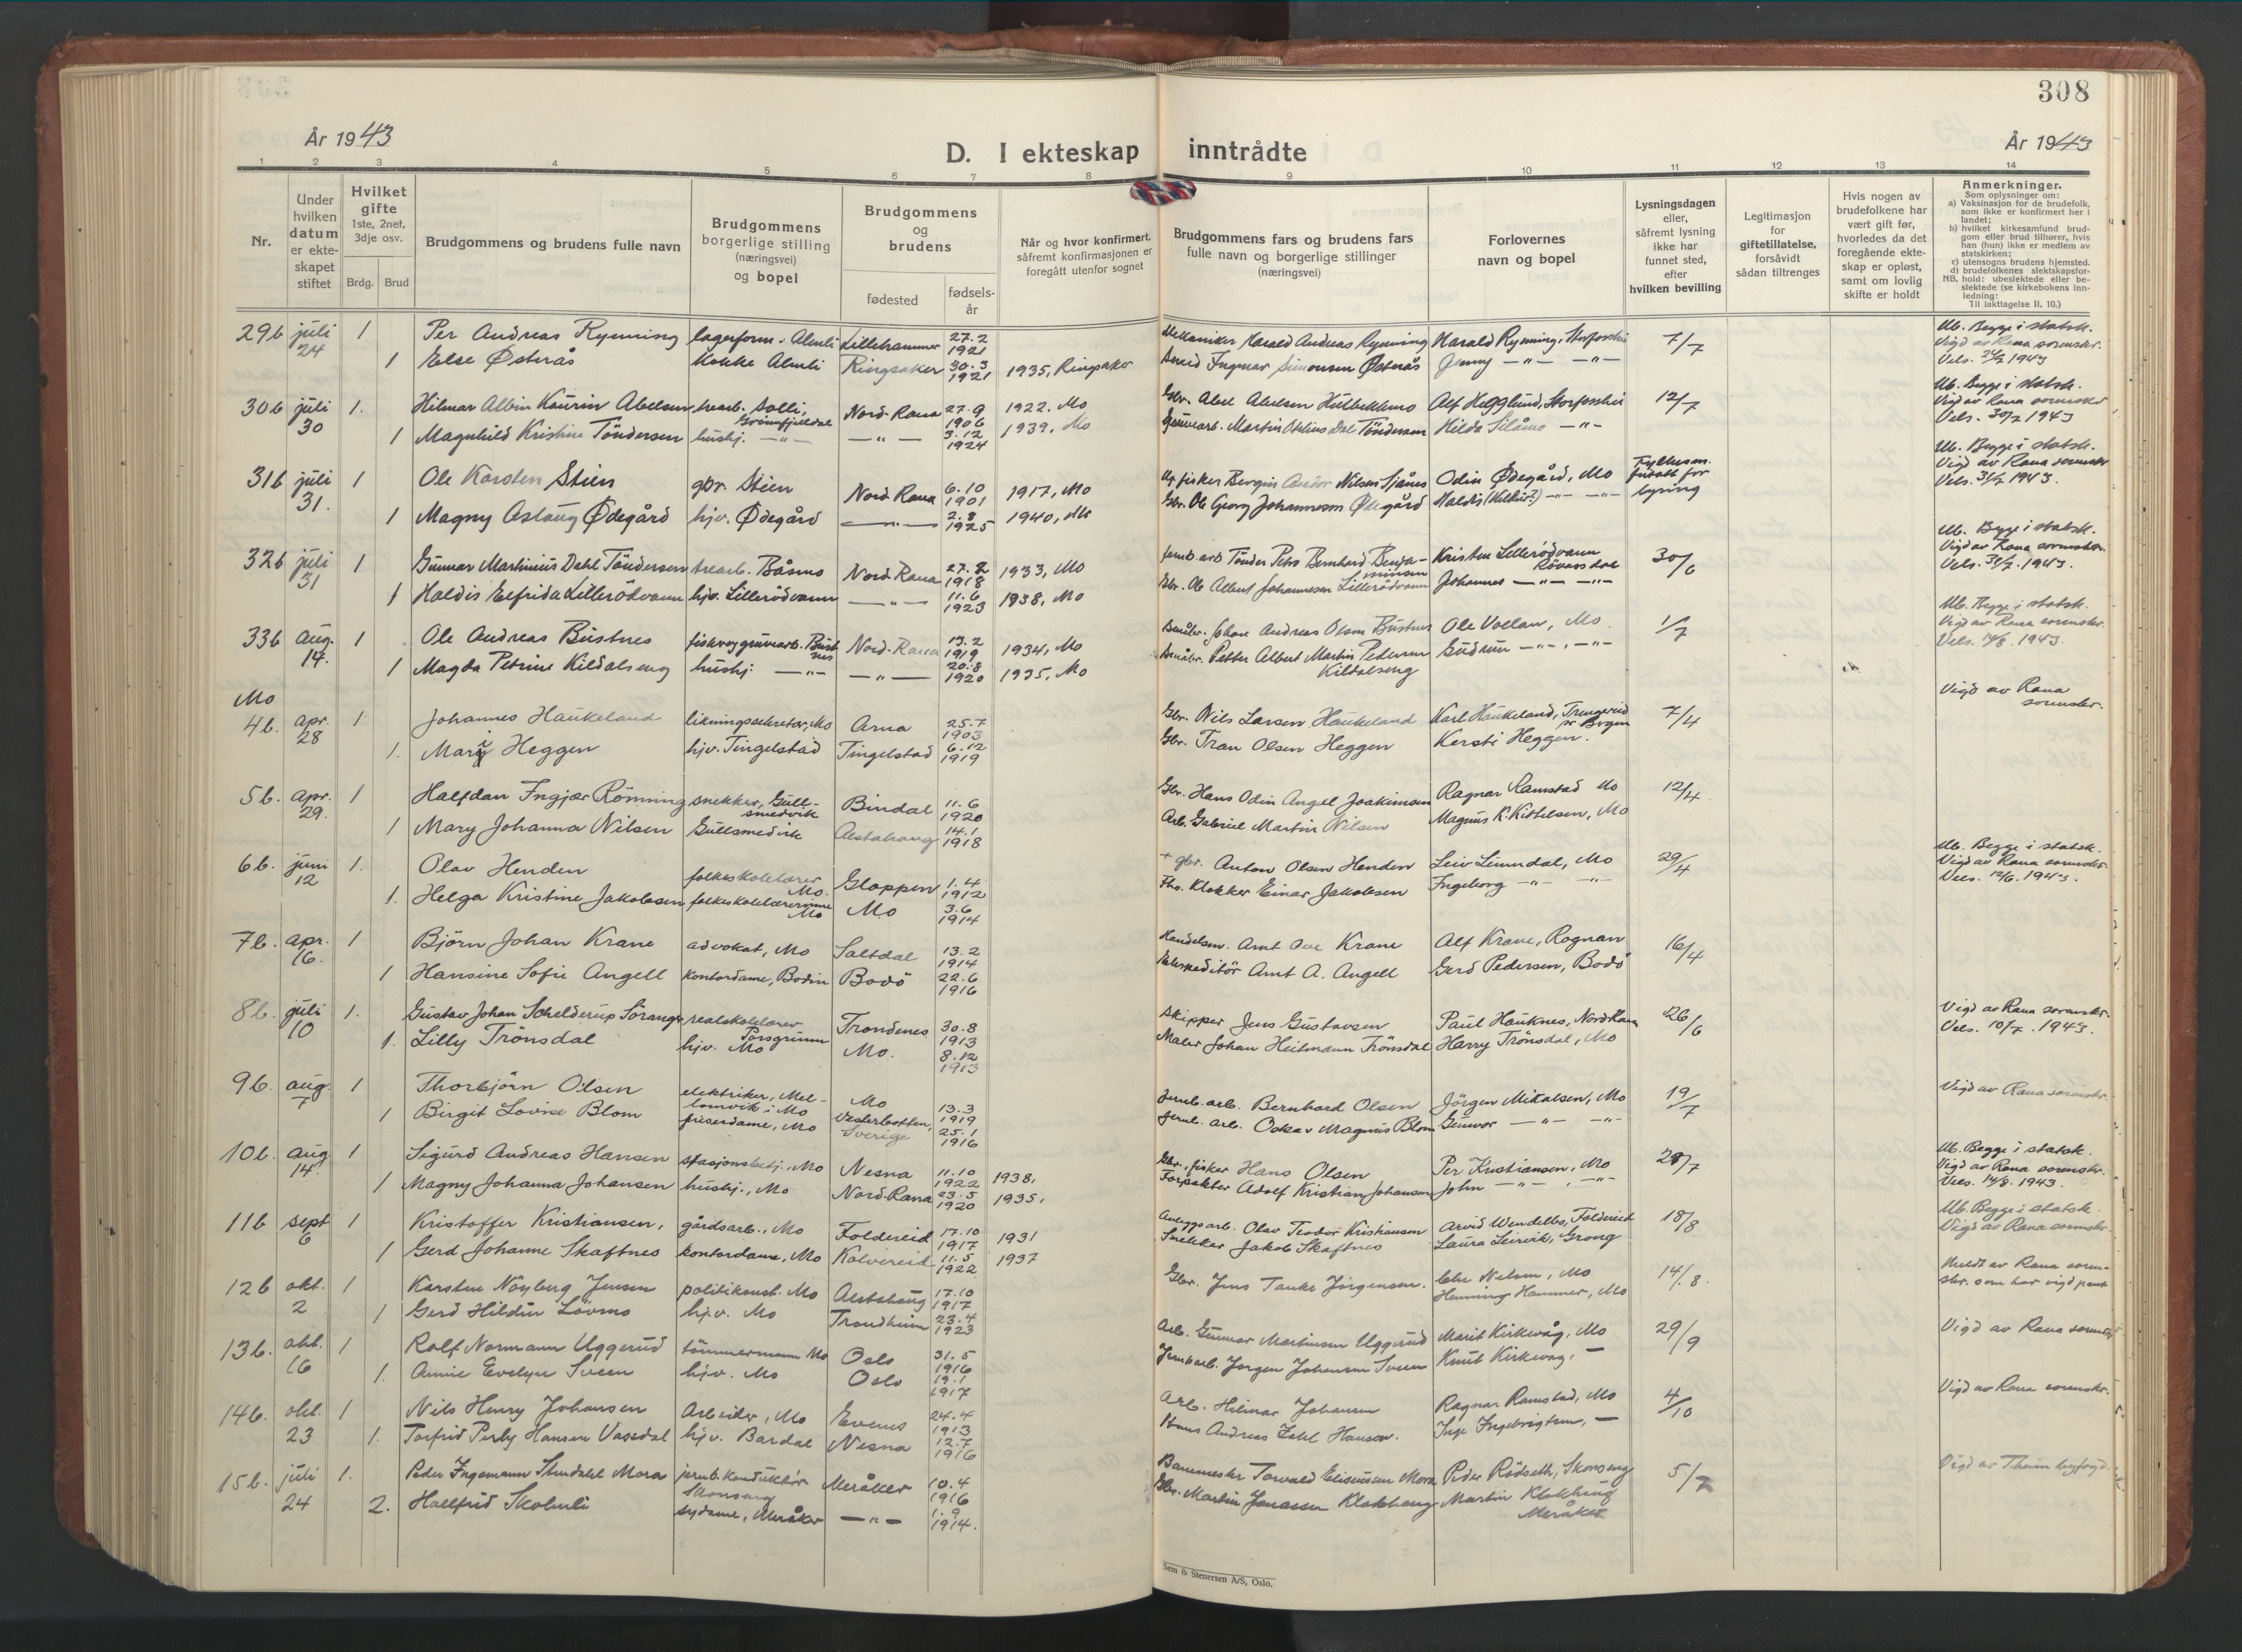 308
År 1943
D. I ekteskap inntrådte
År 1943
1 2 3 4 5 6 7 8 9 10 11 12 13 14
Nr.
Under hvilken datum er ekteskapet stiftet
Hvilket gifte 1ste, 2net, 3dje osv.
Brdg. Brud
Brudgommens og brudens fulle navn
Brudgommens borgerlige stilling (næringsvei) og bopel
Brudgommens og brudens
fødested
fødselsår
Når og hvor konfirmert, såfremt konfirmasjonen er foregått utenfor sognet
Brudgommens fars og brudens fars fulle navn og borgerlige stillinger (næringsvei)
Forlovernes navn og bopel
Lysningsdagen eller, såfremt lysning ikke har funnet sted, efter hvilken bevilling
Legitimasjon for giftetillatelse, forsåvidt sådan tiltrenges
Hvis nogen av brudefolkene har vært gift før, hvorledes da det foregående ekteskap er opløst, samt om lovlig skifte er holdt
Anmerkninger.
Som oplysninger om:
a) Vaksinasjon for de brudefolk, som ikke er konfirmert her i landet;
b) hvilket kirkesamfund brudgom eller brud tilhører, hvis han (hun) ikke er medlem av statskirken;
c) utensogns brudens hjemsted.
d) brudefolkenes slektskapsforhold: ubeslektede eller beslektede (se kirkebokens innledning:
NB. Til iakttagelse II. 10.)
29b juli 24 1 Per Andreas Rynning lagerform. Almli Lillehammer 27.2 1921 Mekaniker Harald Andreas Rynning Harald Rynning, Storforshei 7/7 Ub. Begge i statsk. Vigd av Rana sorenskr. Vels. 24/7 1943
1 Else Østerås kokke Almli Ringsaker 30.3 1921 1935, Ringsaker Ingmar Simonsen Østerås Jenny —"— —"—
30b juli 30 1. Hilmar Albin Kaurin Abelsen trearb. Solli, Grönnfjelldal Nord-Rana 27.9 1906 1922. Mo Gbr. Abel Abelsen Alf Hegglund, Storforshei 12/7 Ub. Begge i statsk. Vigd av Rana sorenskr Vels. 30/7 1943
1 Magnhild Kristine Töndersen hushj. —"— —"— 3.12 1924 1939, Mo Gruvearb. Martin Otelius Dal Töndersen Hilda Silåmo —"—
31b juli 31. 1 Ole Karsten Stien gbr. Stien Nord-Rana 6.10 1901 1917, Mo fisker Bergin Andor Nilsen Sjånes Odin Ødegård, Mo Fylkesm. fritatt for lysing Ub. Begge i statsk. Vigd av Rana sorenskr Vels. 31/7 1943.
1 Magny Aslaug Ødegård hjv. Ødegård —"— 2.8 1925 1940, Mo Gbr. Ole Georg Johannesen Ødegård Haldis —"— —"—
32b juli 31 1 Gunnar Martinius Dahl Töndersen trearb. Båsmo Nord-Rana 27.2 1918 1933, Mo Tönder Peter Bernhard Benjaminsen Kristen Lillerödvann Rövassdal 30/6 Ub. Begge i statsk. Vigd av Rana sorenskr. Vels. 31/7. 1943.
1 Haldis Elfrida Lillerödvann hjv. Lillerödvann —"— 11.6 1923 1938, Mo Gbr. Ole Albert Johannesen Lillerödvann Johannes —"— —"—
33b aug. 14. 1 Ole Andreas Bustnes fisker og gruvearb. Bustnes Nord-Rana 13.2 1919 1934, Mo Johan Andreas Olsen Bustnes Ole Vollan, Mo. 1/7 Ub. Begge i statsk. Vigd av Rana sorenskr. Vels. 14/8. 1943.
1 Magda Petrine Kildalseng hushj. —"— —"— 20.8 1920 1935, Mo Petter Albert Martin Pedersen Kildalseng Gudrun —"—, —"—
Mo
4b. apr. 28 1 Johannes Haukeland likningssekretær, Mo Arna 25.7 1903 Gbr. Nils Larsen Haukeland Karl Haukeland, Trengereid pr Bergen 7/4 Vigd av Rana sorenskr.
1. Mari Heggen hjv. Tingelstad Tingelstad 6.12 1919 Gbr. Tran Olsen Heggen Kersti Heggen.
5b. apr. 29. 1 Halfdan Ingjær Rönning snekker, Gullsmedvik Bindal 11.6 1920 Gbr. Hans Odin Angell Joakimsen Ragnar Ramstad Mo 12/4.
1 Mary Johanna Nilsen Gullsmedvik Alstahaug 14.1 1918 Arb. Gabriel Martin Nilsen Magnus K. Kittelsen, Mo
6b. juni 12 1. Olav Henden folkeskolelærer Mo. Gloppen 1.4 1912 + gbr. Anton Olsen Henden Leiv Linndal, Mo 29/4 Ub. Begge i statsk. Vigd av Rana sorenskr. Vels. 12/6. 1943.
1. Helga Kristine Jakobsen folkeskolelærerinne Mo Mo 3.6 1914 Klokker Einar Jakobsen Ingeborg —"— —"—
7b. apr. 16. 1 Björn Johan Krane advokat, Mo Saltdal 13.2 1914 Handelsm. Arnt Ove Krane Alf Krane, Rognan 16/4
1 Hansine Sofie Angell kontordame, Bodin Bodö 22.6 1916 Ekspeditör Arnt A. Angell Gerd Pedersen, Bodö
8b. juli 10 1. Gustav Johan Schelderup Sörange realskolelærer Porsgrunn Trondenes 30.8 1913 Skipper Jens Gustavsen Paul Hauknes, Nord Rana 26/6 Vigd av Rana sorenskr. Vels. 10/7. 1943.
1. Lilly Trönsdal hjv. Mo Mo. 8.12 1913 Maler Johan Heitmann Trönsdal Harry Trönsdal, Mo
9b. aug. 7 1 Thorbjörn Olsen elektriker, Mellomvik i Mo Mo 13.3 1919 Jernb. arb. Bernhard Olsen Jörgen Mikalsen, Mo 19/7 Vigd av Rana sorenskr.
1 Birgit Lovise Blom friserdame, Mo Vesterbotten, Sverige 25.1 1916 Jernb. arb. Oskar Magnus Blom Gunvor —"— —"—
10b. aug 14. 1 Sigurd Andreas Hansen stasjonsbetj., Mo Nesna 11.10 1922 1938. Gbr., fisker Hans Olsen Per Kristiansen, Mo 28/7 Ub. Begge i statsk. Vigd av Rana sorenskr. Vels. 14/8. 1943.
1 Magny Johanna Johansen hushj., Mo Nord-Rana 23.5 1920 1935. Forpakter Adolf Kristian Johansen John —"—, —"—
11b sept 6 1 Kristoffer Kristiansen, gårdsarb., Mo Foldereid 17.10 1917 1931 Anleggsarb. Olav Teodor Kristiansen Arvid Wendelbo, Foldereid 18/8 Ub. Begge i statsk. Vigd av Rana sorenskr
1 Gerd Johanne Skaftnes kontordame, Mo Kolvereid 11.5 1922 1937 Snekker Jakob Skaftnes Laura Leirvik, Grong
12b okt. 2 1 Karsten Nöyberg Jensen politikonst. Mo Alstahaug 17.10 1917 Gbr. Jens Tanke Jörgensen. Chr. Nilsen, Mo 14/8. Meldt av Rana sorenskr. som har vigd paret
1 Gerd Hildur Lövmo hjv. Mo Trondheim 23.4 1923 Henning Hammer, Mo
13b. okt. 16 1 Rolf Normann Uggerud tömmermann Mo Oslo 31.5 1916 Arb. Gunnar Martinsen Uggerud Marit Kirkevåg, Mo 29/9 Vigd av Rana sorenskr
1. Annie Evelyn Sveen hjv. Mo Oslo 19.1 1917 Jernbarb. Jørgen Johansen Sveen Knut Kirkevåg, —
14b. okt. 23 1 Nils Henry Johansen Arbeider, Mo Evenes 24.4 1913 Arb. Hilmar Johansen Ragnar Ramstad, Mo 4/10 Vigd av Rana sorenskr.
1. Torfrid Perly Hansen Vassdal hjv. Bardal Nesna 12.7 1916 Hans Andreas Hansen. Inge Ingebrigtsen, —
15b. juli 24 1. Peder Ingemann Stendahl Mora jernb. konduktör Skonseng Meråker 10.4 1916 Banemester Torvald Eliseussen Mora Peder Rödseth, Skonseng 5/7 Vigd av Theim byfogd.
2. Hallfrid Skoluli sydame, Meråker —"— 1.9 1914. Gbr. Martin Jonassen Klokhaug Martin Klokhaug Meråker
Sem & Stenersen A/S, Oslo.